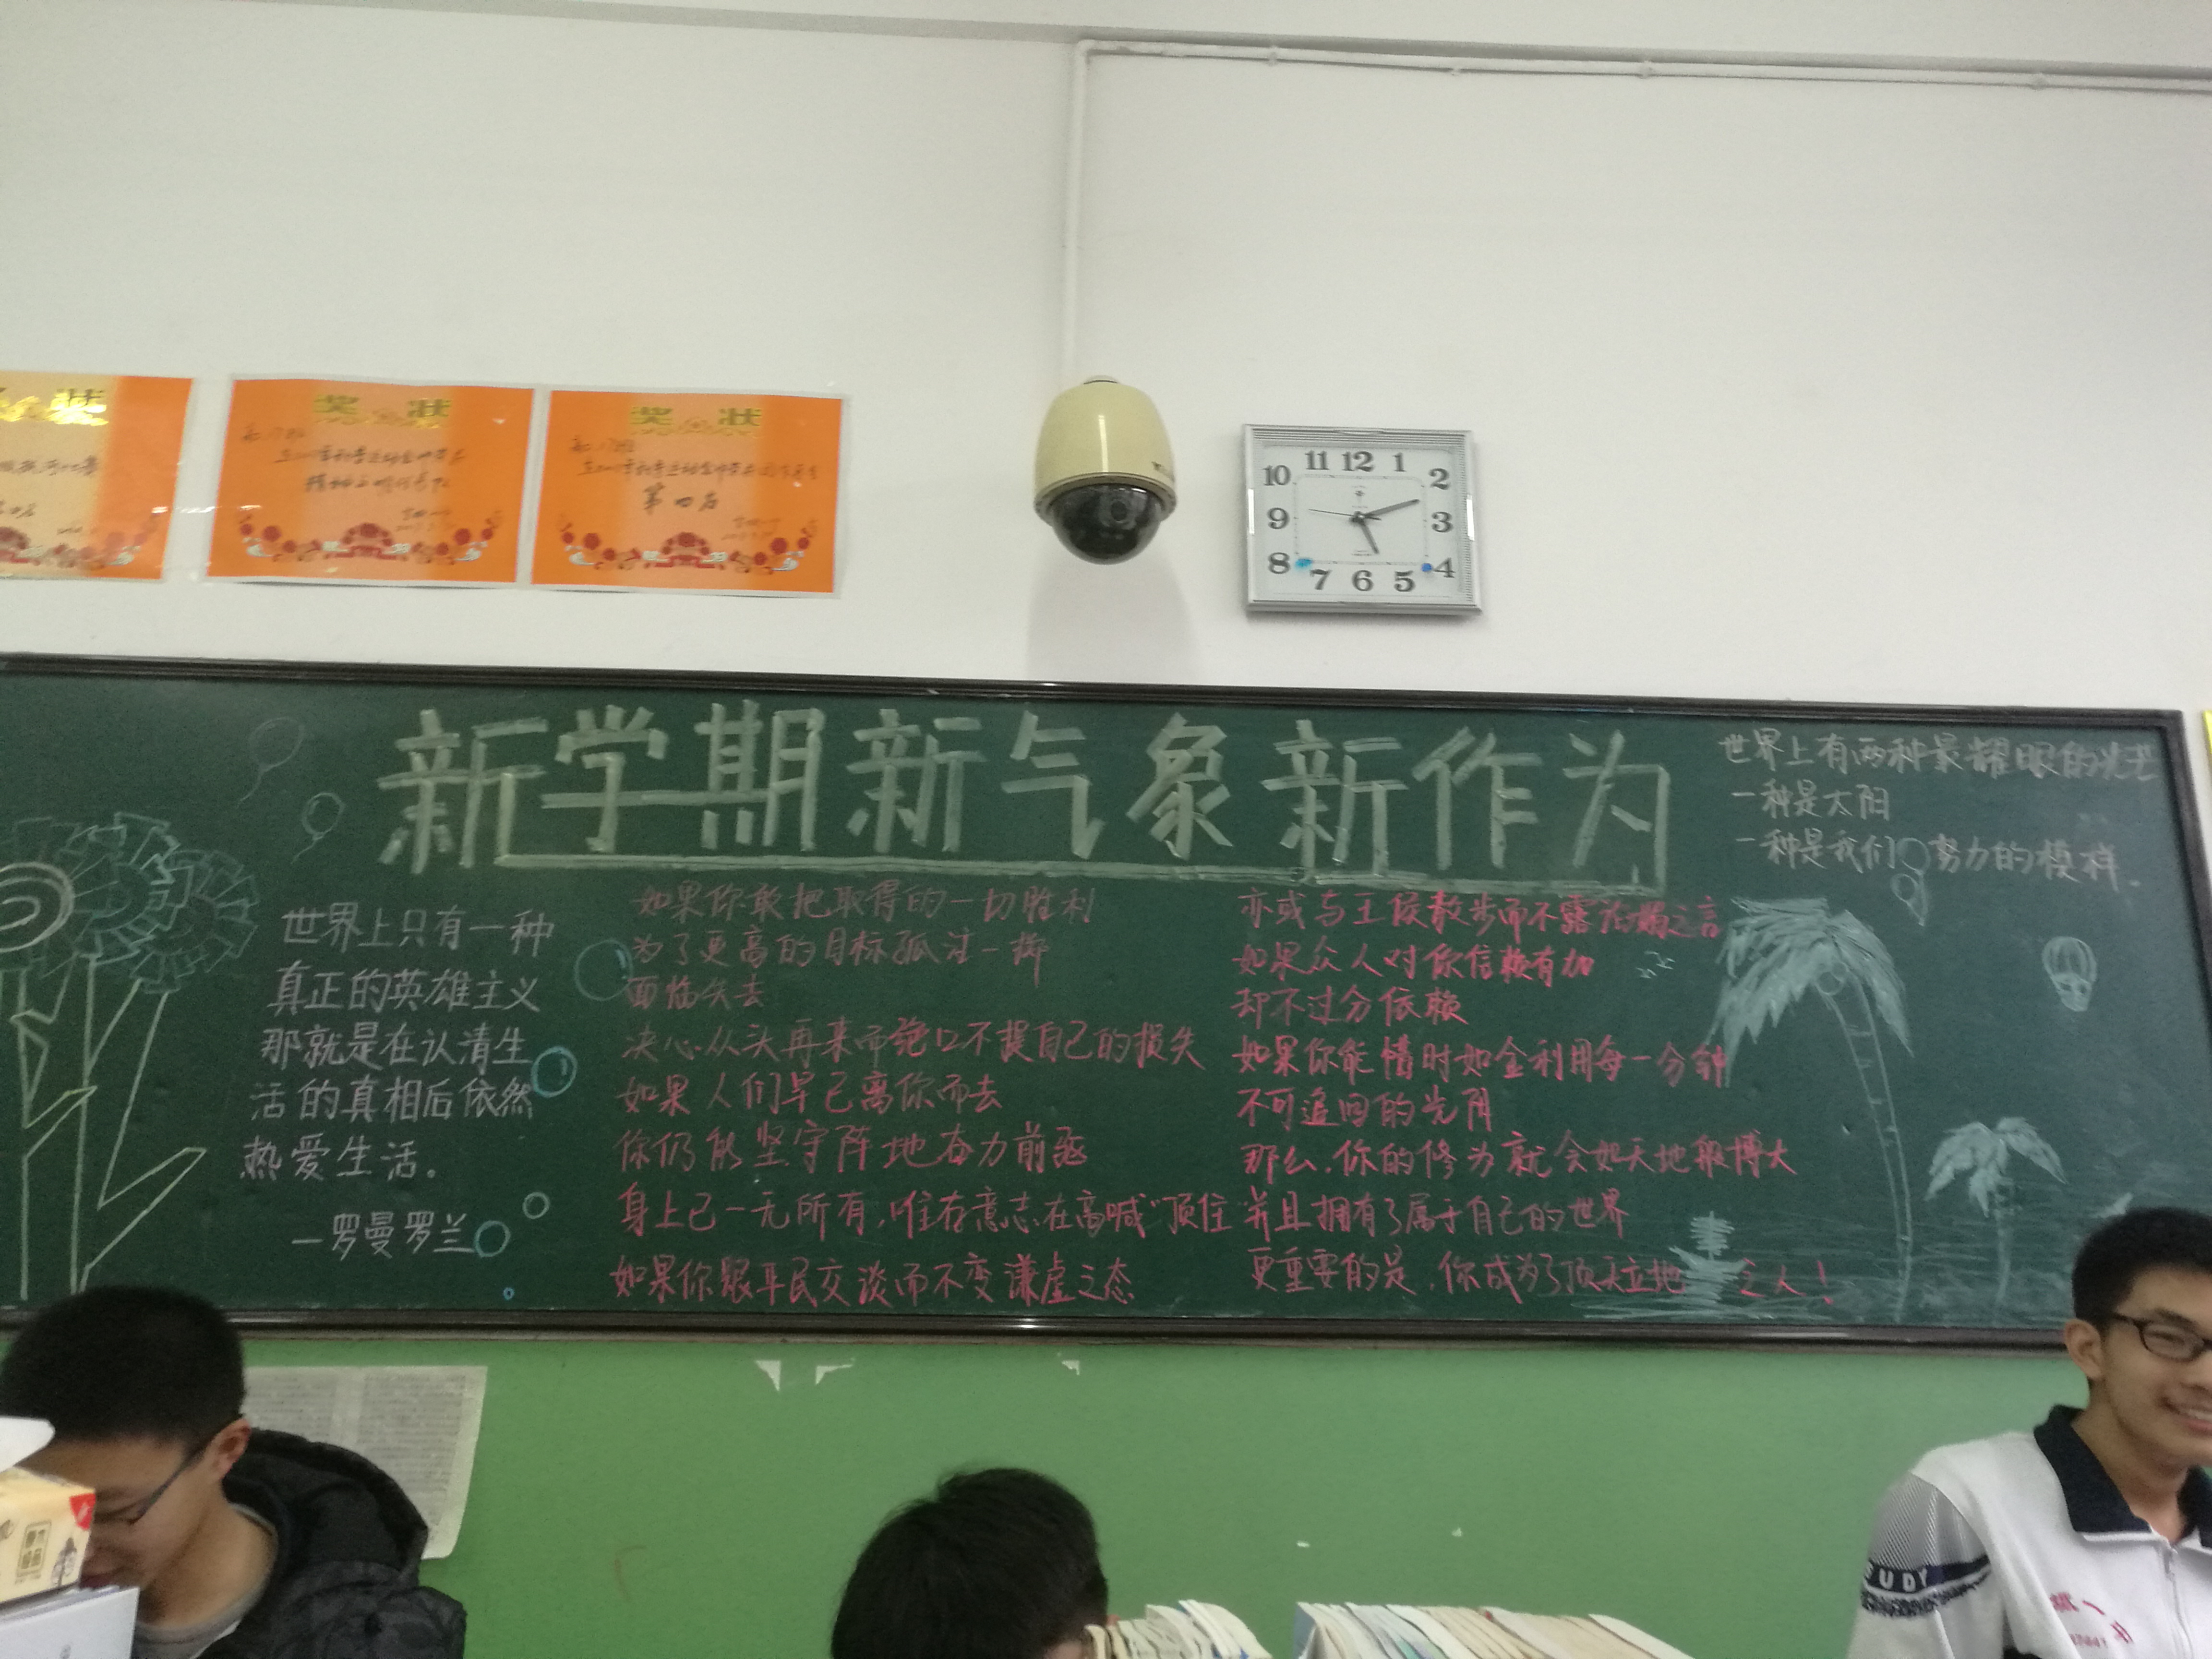 奖状
奖状
第四名
11 12 1
10 2
9 3
8 4
7 6 5
新学期新气象新作为
世界上有两种最耀眼的光芒
一种是太阳
一种是我们努力的模样.
世界上只有一种
真正的英雄主义
那就是在认清生
活的真相后依然
热爱生活.
—罗曼罗兰
如果你敢把取得的一切胜利
为了更高的目标孤注一掷
面临失去
决心从头再来而绝口不提自己的损失
如果人们早已离你而去
你仍能坚守阵地奋力前
身上已一无所有,唯存意志在高喊“顶住”
如果你跟平民交谈而不变谦虚之态
亦或与王侯散步而不露谄媚之言
如果众人对你信赖有加
却不过分依赖
如果你能惜时如金利用每一分钟
不可追回的光阴
那么,你的修为就会如天地般博大
并且拥有了属于自己的世界
更重要的是,你成为了顶天立地之人!
UDY